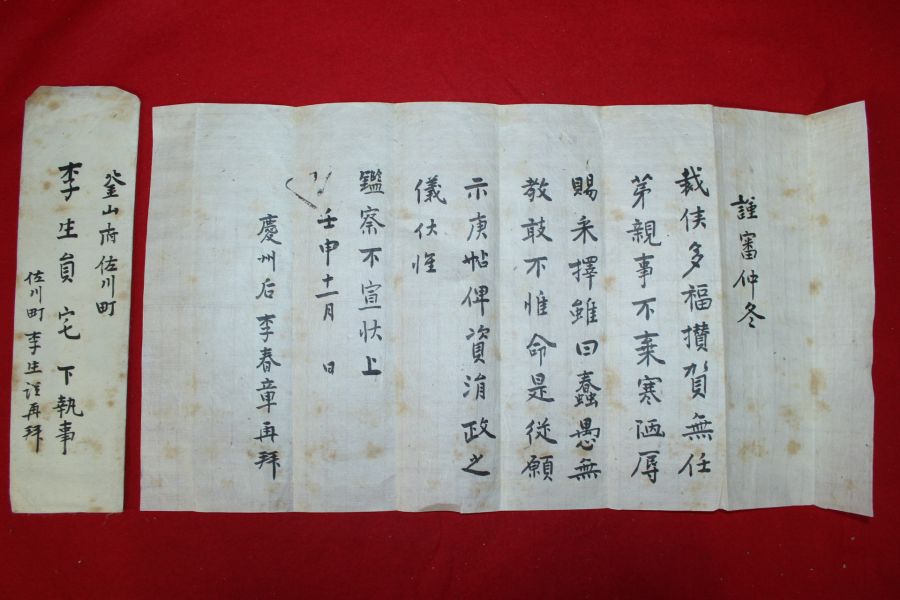 謹審仲冬
裁候多福攢賀無任
第親事不棄寒陋辱
賜采擇雖曰蠢愚無
教敢不惟命是從願
示庚帖俾資涓政之
儀伏惟
鑑察不宣狀上
壬申十一月 日
慶州后李春章再拜
釜山府佐川町
李生員宅 下執事
佐川町 李生謹再拜